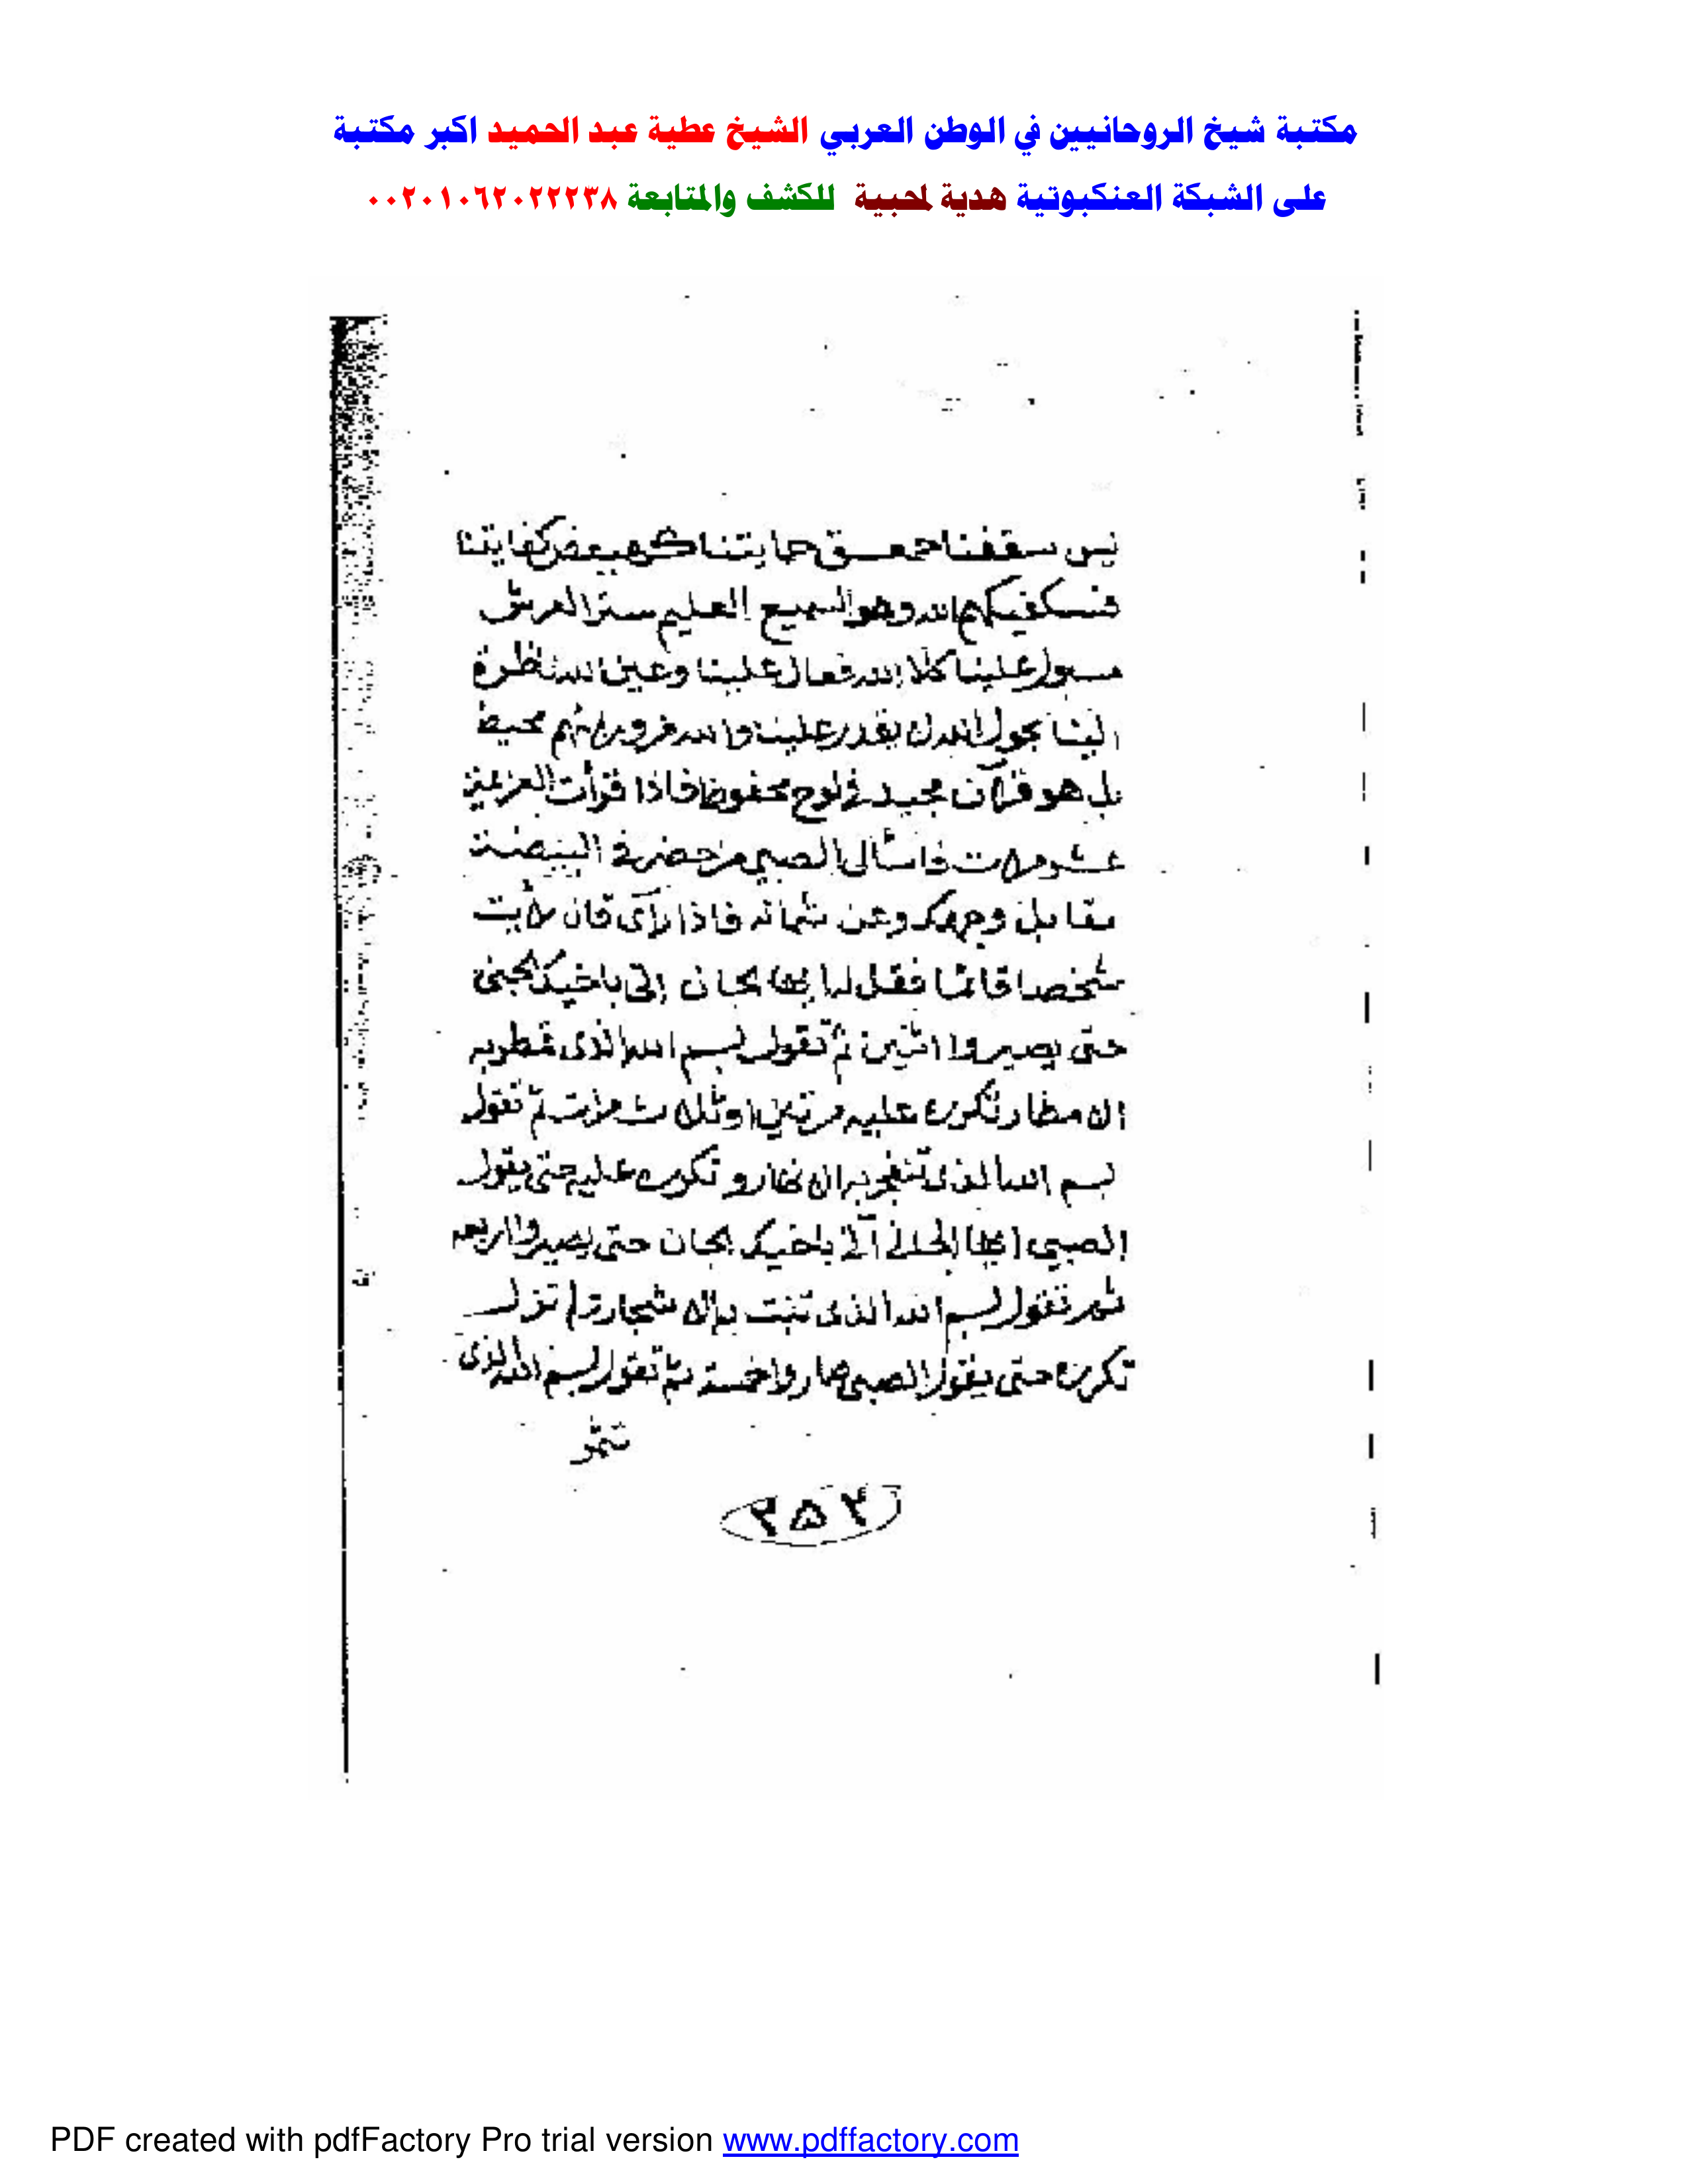 مكتبة شيخ الروحانيين في الوطن العربي الشيخ عطية عبد الحميد اكبر مكتبة
على الشبكة العنكبوتية هدية لمحبية للكشف والمتابعة ٠٠٢٠١٠٦٢٠٢٢٢٣٨
يس سقفنا حمعسق حمايتنا كهيعص كفايتنا
فسيكفيكهم الله وهو السميع العليم ستر العرش
مسبول علينا وعين الله ناظرة
الينا بحول الله لا يقدر علينا والله من ورائهم محيط
بل هو قرآن مجيد في لوح محفوظ فاذا قرأت العزيمة
عشر مرات فاسأل الصبي من حضر في البيضة
مقابل وجهك وعن شماله فاذا رآى قال رأيت
شخصا قائما فقل له ايها الجان إلى باخيك الجني
حتى يصيروا اثنين ثم تقول بسم الله الذى تمطر به
الامطار تكرره عليه مرتين او ثلاث مرات ثم تقول
بسم الله الذى تنفجر به الانهار وتكرره عليه حتى يقول
الصبي ايها باخيك الجان حتى يصيروا اربعه
ثم تقول بسم الله الذى تنبت به الاشجار ولم تزل
تكرره حتى يقول الصبي صاروا خمسة ثم تقول بسم الله الذى
تثمر
٢٥٢
PDF created with pdfFactory Pro trial version www.pdffactory.com